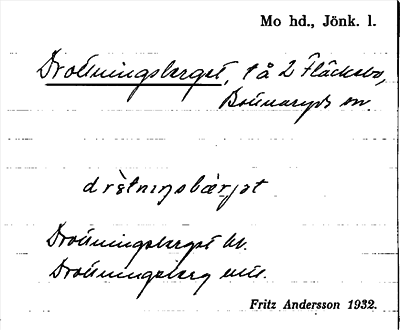 Mo hd., Jönk. l.
Drottningsberget, t å 2 Fläckebo,
Bottnaryds sn.
drètnıŋsbærjət
Drottningsberget hl.
Drottningsberg
Fritz Andersson 1932.